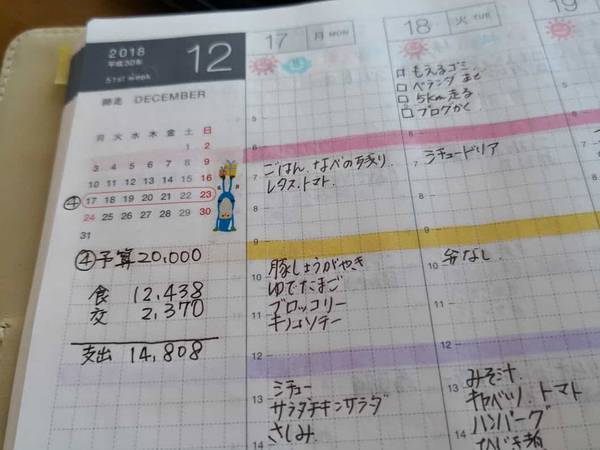 2018
平成30年
51st week
12
師走 DECEMBER
月 火 水 木 金 土 日
1 2
3 4 5 6 7 8 9
10 11 12 13 14 15 16
④ 17 18 19 20 21 22 23
24 25 26 27 28 29 30
31
④予算20,000
食 12,438
交 2,370
支出 14,808
17 月 MON
5
6
ごはん.なべの残り
7
レタス.トマト.
8
9
10
豚しょうがやき
ゆでたまご
11
ブロッコリー
キノコソテー
12
13
シチュー
サラダチキンサラダ
14
さしみ
18 火 TUE
□ もえるゴミ
□ 5km走る
□ ブログかく
5
6
シチュードリア
7
8
9
10
弁なし.
11
12
13
みそ汁.
キャベツ.トマト
14
ハンバーグ
19